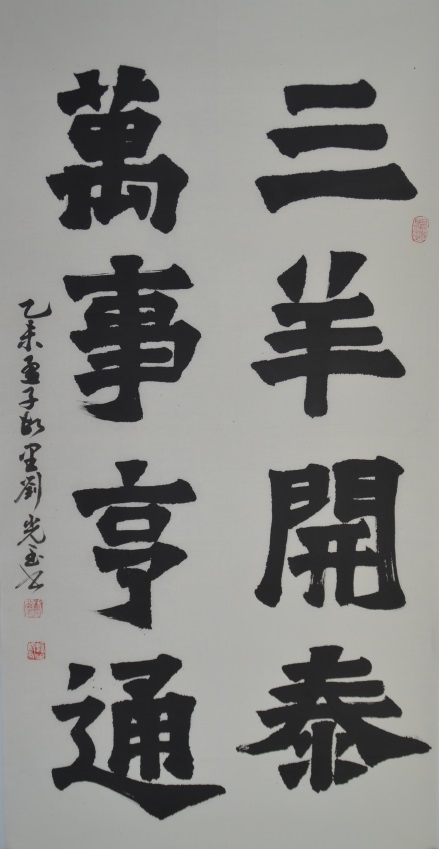 三羊開泰
萬事亨通
乙未孟子故里劉光玉书